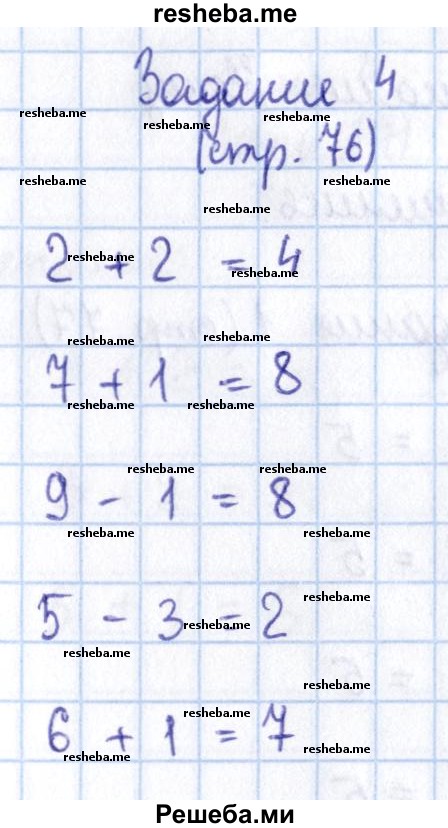 resheba.me
Задание 4
(стр. 76)
2 + 2 = 4
7 + 1 = 8
9 - 1 = 8
5 - 3 = 2
6 + 1 = 7
Решеба.ми